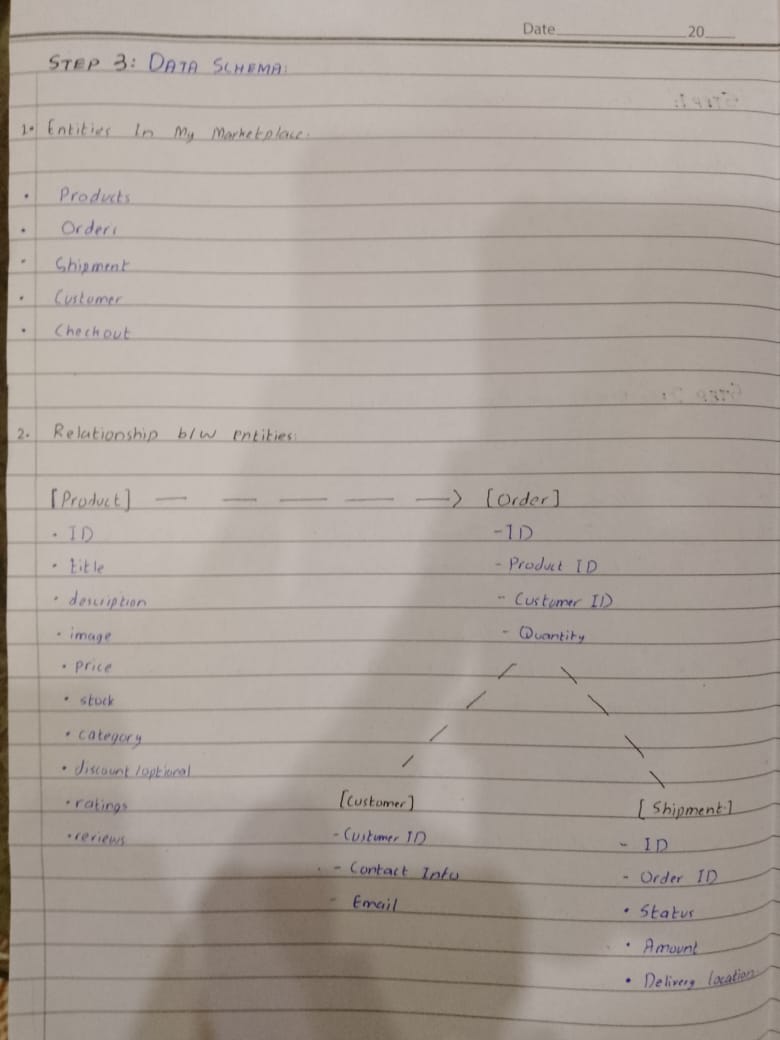 Date 20
STEP 3: DATA SCHEMA:
1. Entities In My Marketplace.
• Products
• Orders
• Shipment
• Customer
• Checkout
2. Relationship b/w entities:
[Product] — — — — —> [Order]
• ID
• title
• description
• image
• price
• stock
• category
• discount /optional
• ratings
• reviews
- ID
- Product ID
- Customer ID
- Quantity
[Customer]
- Customer ID
- Contact Info
- Email
[Shipment]
- ID
- Order ID
• Status
• Amount
• Delivery location